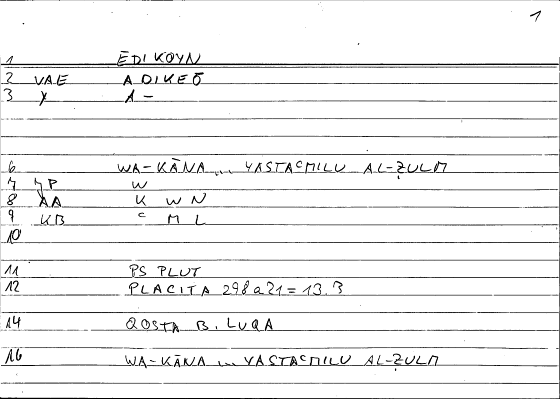 1
1 ĒDIKOYN
2 VAE ADIKEŌ
3 X A –
6 WA-KĀNA ... YASTAᶜMILU AL-ẒULM
7 JP W
8 AA K W N
9 KB ᶜ M L
10
11 PS PLUT
12 PLACITA 298a21 = 13.3
14 QOSTA B. LUQA
16 WA-KĀNA ... YASTAᶜMILU AL-ẒULM